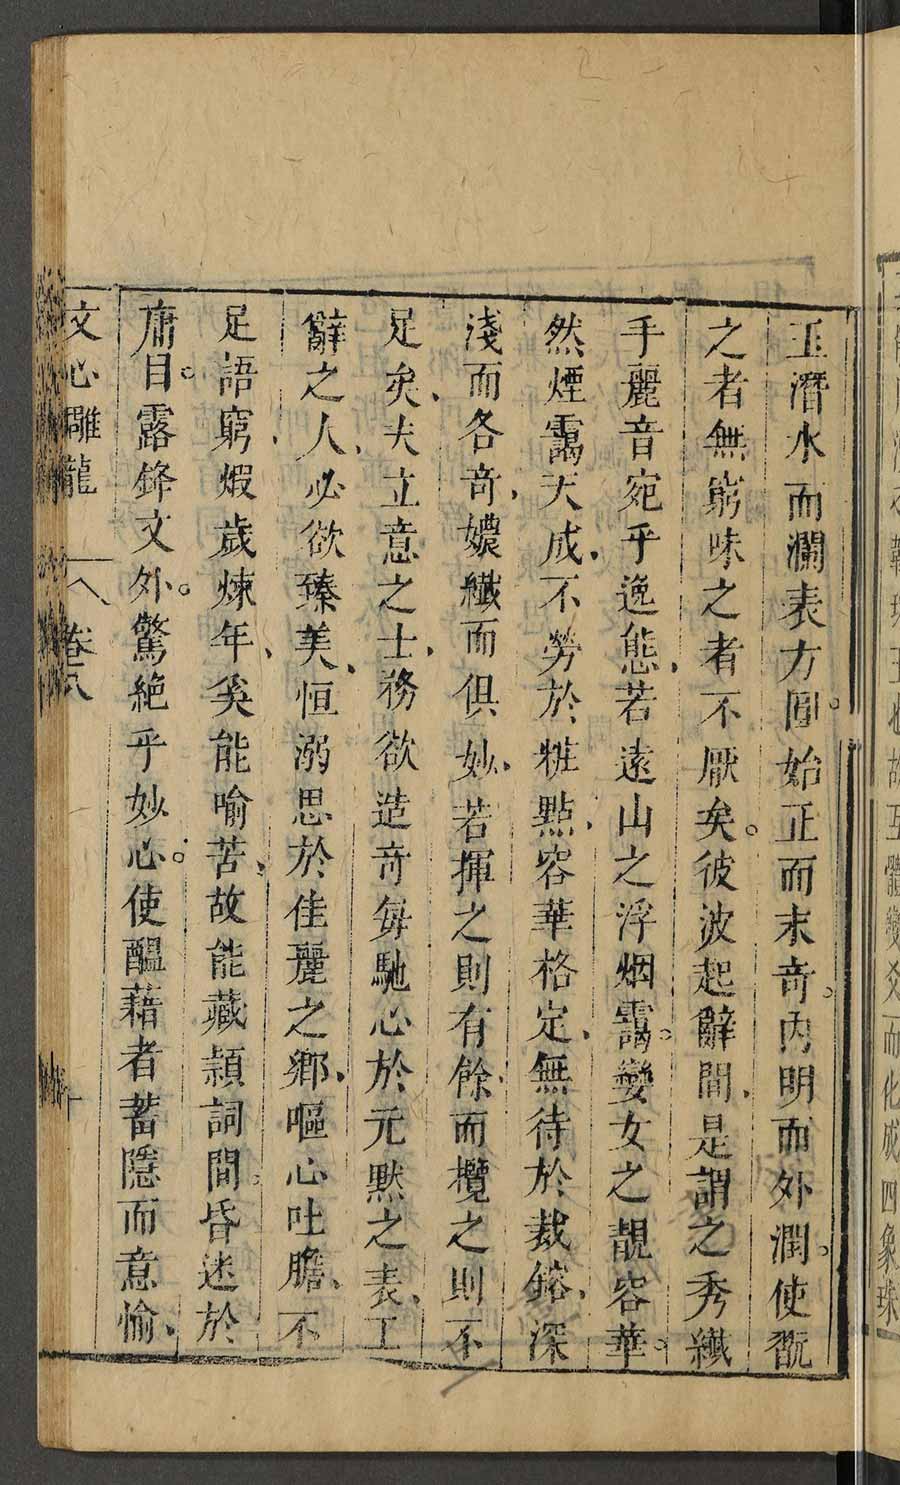 玉潛水而瀾表方圓。始正而末奇。内明而外潤。使翫
之者無窮味之者不厭矣。彼波起辭間、是謂之秀纖
手麗音宛乎逸態、若遠山之浮烟靄。孌女之靚容華。
然煙靄天成、不勞於粧點、容華格定、無待於裁鎔、深
淺而各奇、嬝纖而俱妙、若揮之則有餘、而攬之則不
足矣、夫立意之士、務欲造奇每馳心於元黙之表、工
辭之人、必欲臻美、恒溺思於佳麗之鄉、嘔心吐膽、不
足語窮、煆歲煉年、奚能喻苦、故能藏頴詞間昏迷於
庸目。露鋒文外。驚絶乎妙心。使醖藉者蓄隱而意愉、
文心雕龍 卷八